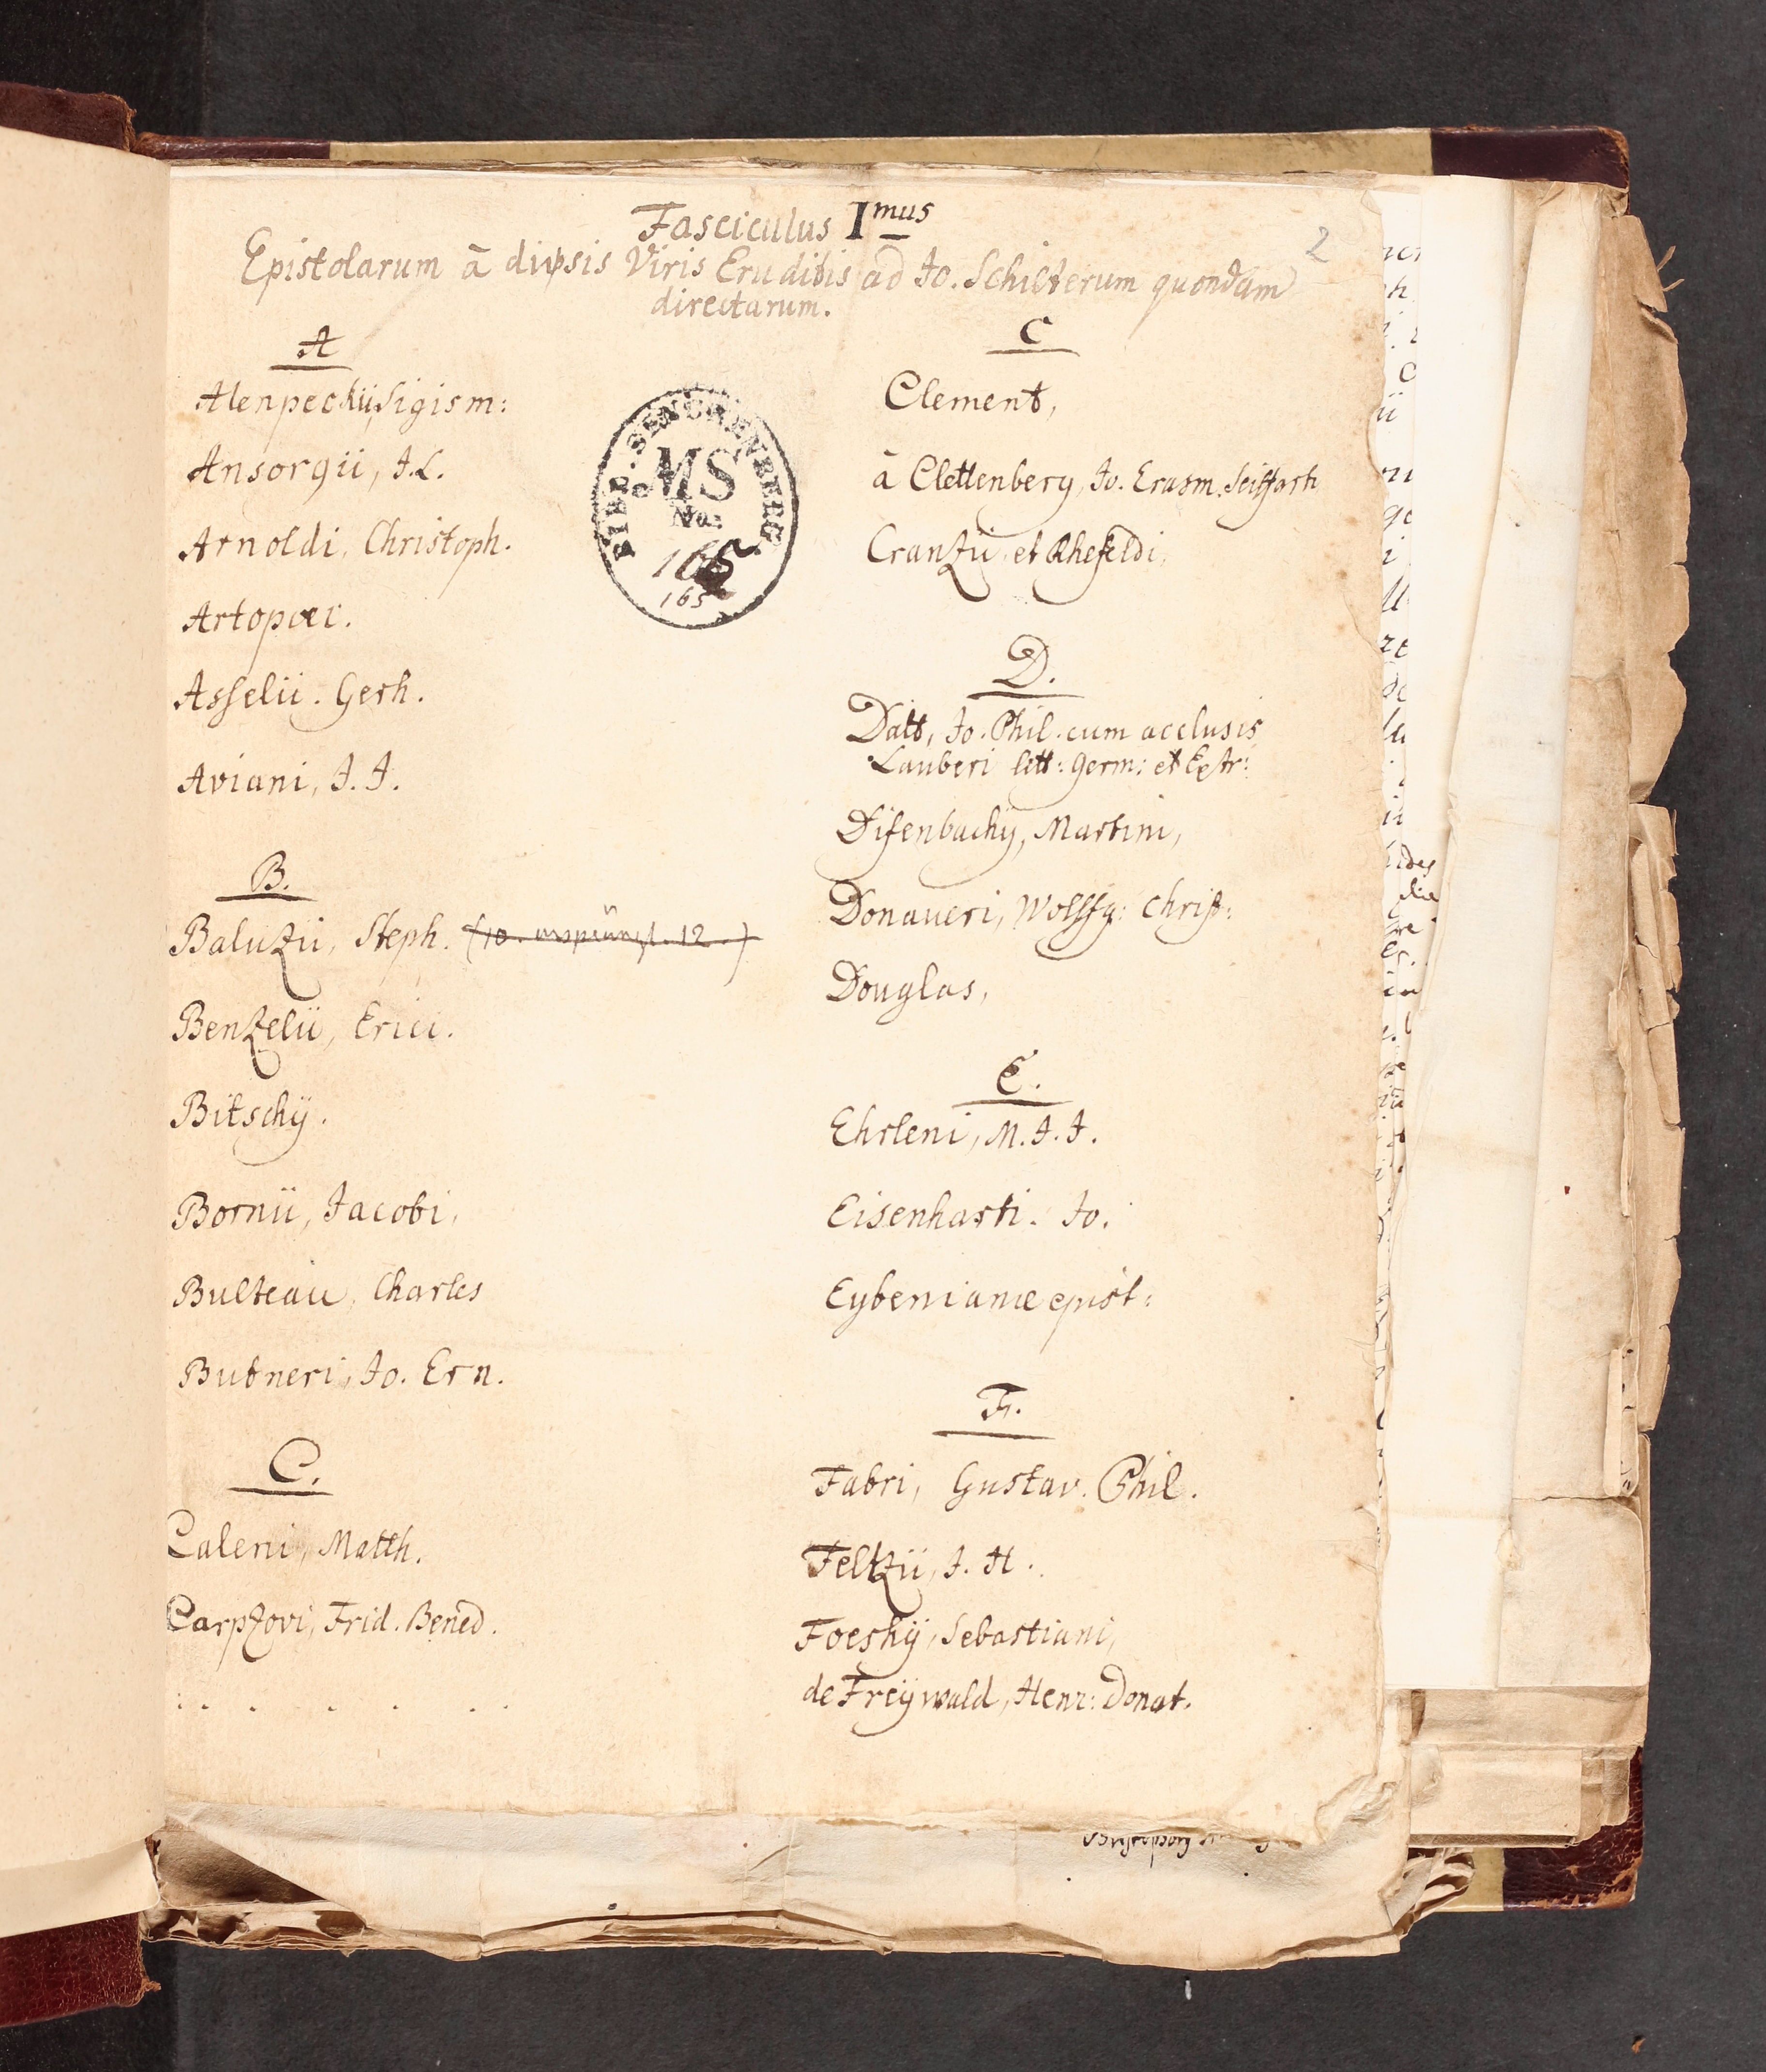 Fasciculus I mus
Epistolarum à diversis Viris Eruditis ad Jo. Schilterum quondam
directarum.
2
A
Alenpeckii, Sigism:
Ansorgii, J. L.
Arnoldi, Christoph.
Artopæi.
Asselii. Gerh.
Aviani, J. J.
B.
Baluzii, Steph. (10. ursprüngl. 12.)
Benzelii, Erici.
Bitschij.
Bornii, Jacobi,
Bulteau, Charles
Butneri, Jo. Ern.
C.
Caleni, Matth.
Carpzovi, Frid. Bened.
BIBL. SENCKENBERG.
MS
No:
165
165
C
Clement,
à Clettenberg, Jo. Erasm. Seiffart
Cranzii et Rhefeldi,
D.
Datt, Jo. Phil. cum acclusis
Lauberi litt: Germ: et Extr:
Difenbachij, Martini,
Donaueri, Wolffg: Christ:
Douglas,
E.
Ehrleni, M. J. J.
Eisenharti. Jo.
Eybenianæ epist:
F.
Fabri, Gustav. Phil.
Feltzii, J. H.
Foeshij, Sebastiani,
de Freÿwald, Henr: Donat.